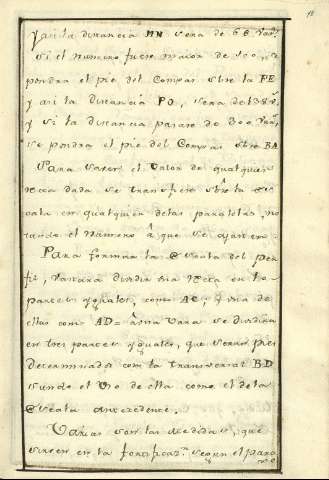 y asi la distancia MN sera de 68 Var.s
si el numero fuere maior de 100, se
pondra el pie del Compas sbre la FE
y asi la distancia PO, sera de 138 v.s
y si la distancia pasare de 300 Var.s
se pondra el pie del Compas sbre BA
Para saver el valor de qualquier
recta dada se transfiere sbre la es
cala en qualquiera delas paralelas, no
tando el numero â que se ajuste.
Para formar la escala del per
fil, vastara dividir una recta en 10
partes yguales, como AC; y una de
ellas como AD = â una vara se dividira
en tres partes yguales, que seran pies
determinados con la transversal BD
siendo el uso de ella como el dela
escala antecedente.
Varias son las medidas, que
sirven en la fortificaz.n segun el para